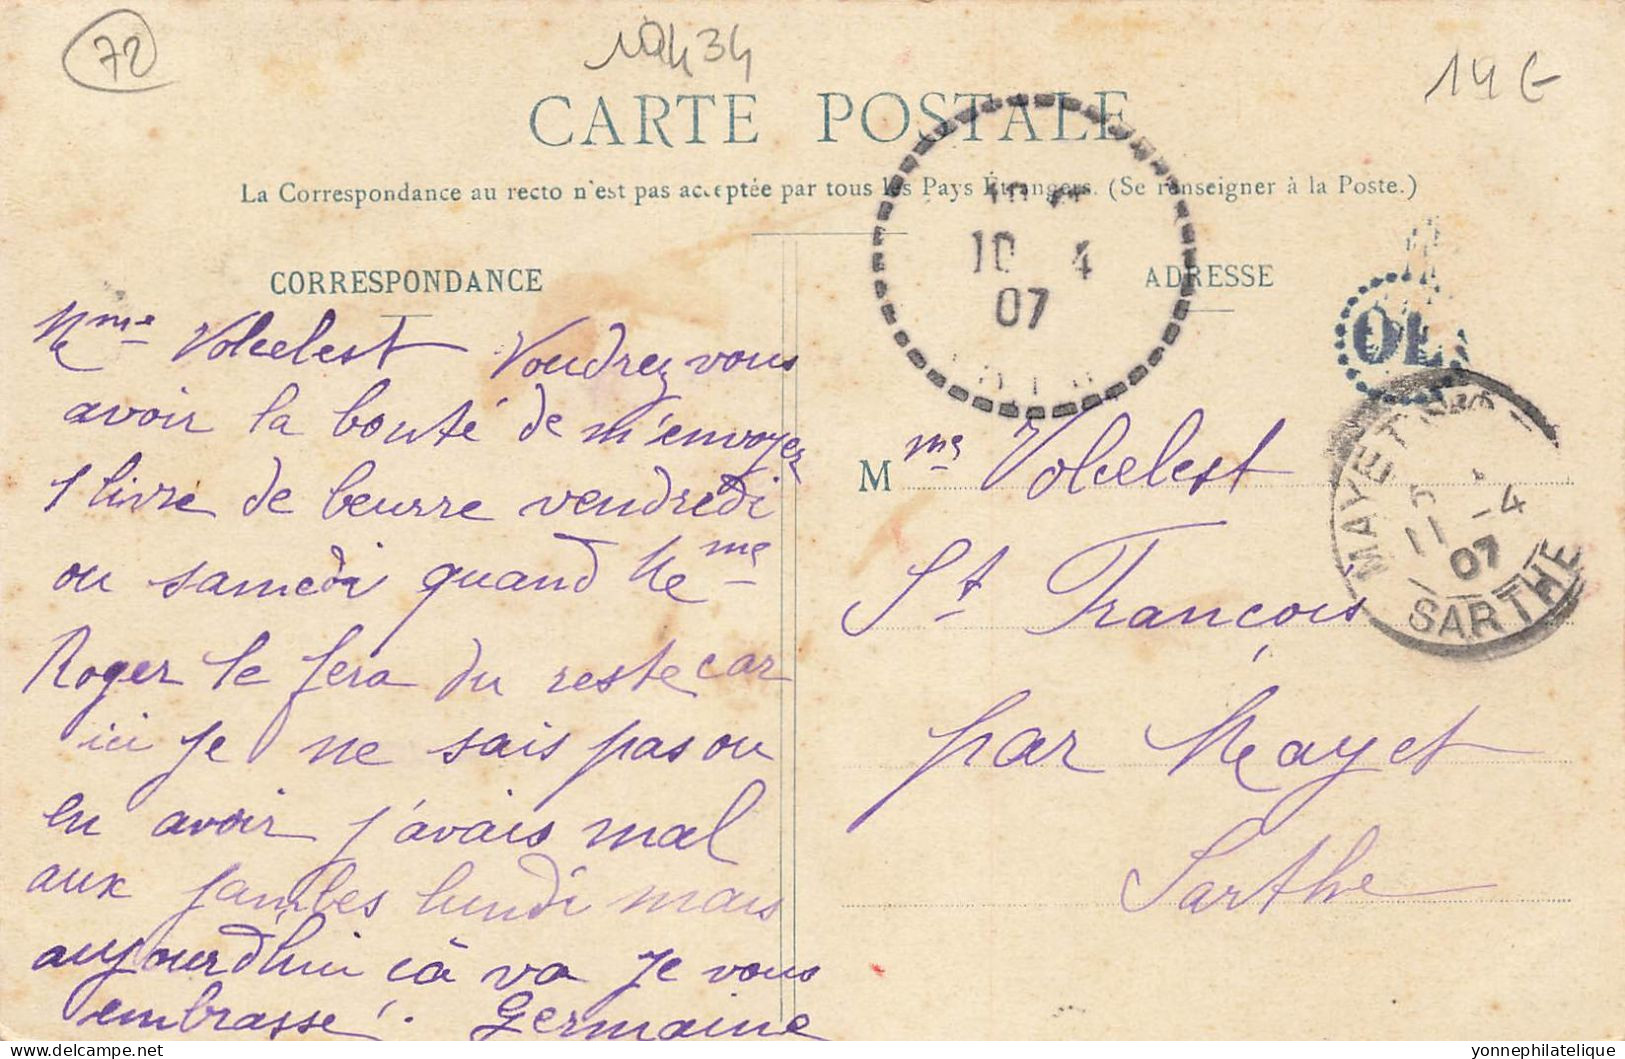 72
19434
14 €
CARTE POSTALE
La Correspondance au recto n'est pas acceptée par tous les Pays Étrangers. (Se renseigner à la Poste.)
CORRESPONDANCE
ADRESSE
10 4
07
OL
MAYET
11 -4
07
SARTHE
Mme Volcelest Voudrez vous
avoir la bonté de m'envoyez
1 livre de beurre vendredi
ou samedi quand Me me
Roger le fera du reste car
ici je ne sais pas ou
en avoir j'avais mal
aux jambes lundi mais
aujourd'hui cà va Je vous
embrasse. Germaine
M me Volcelest
St François
par Mayet
Sarthe
yonnephilatelique